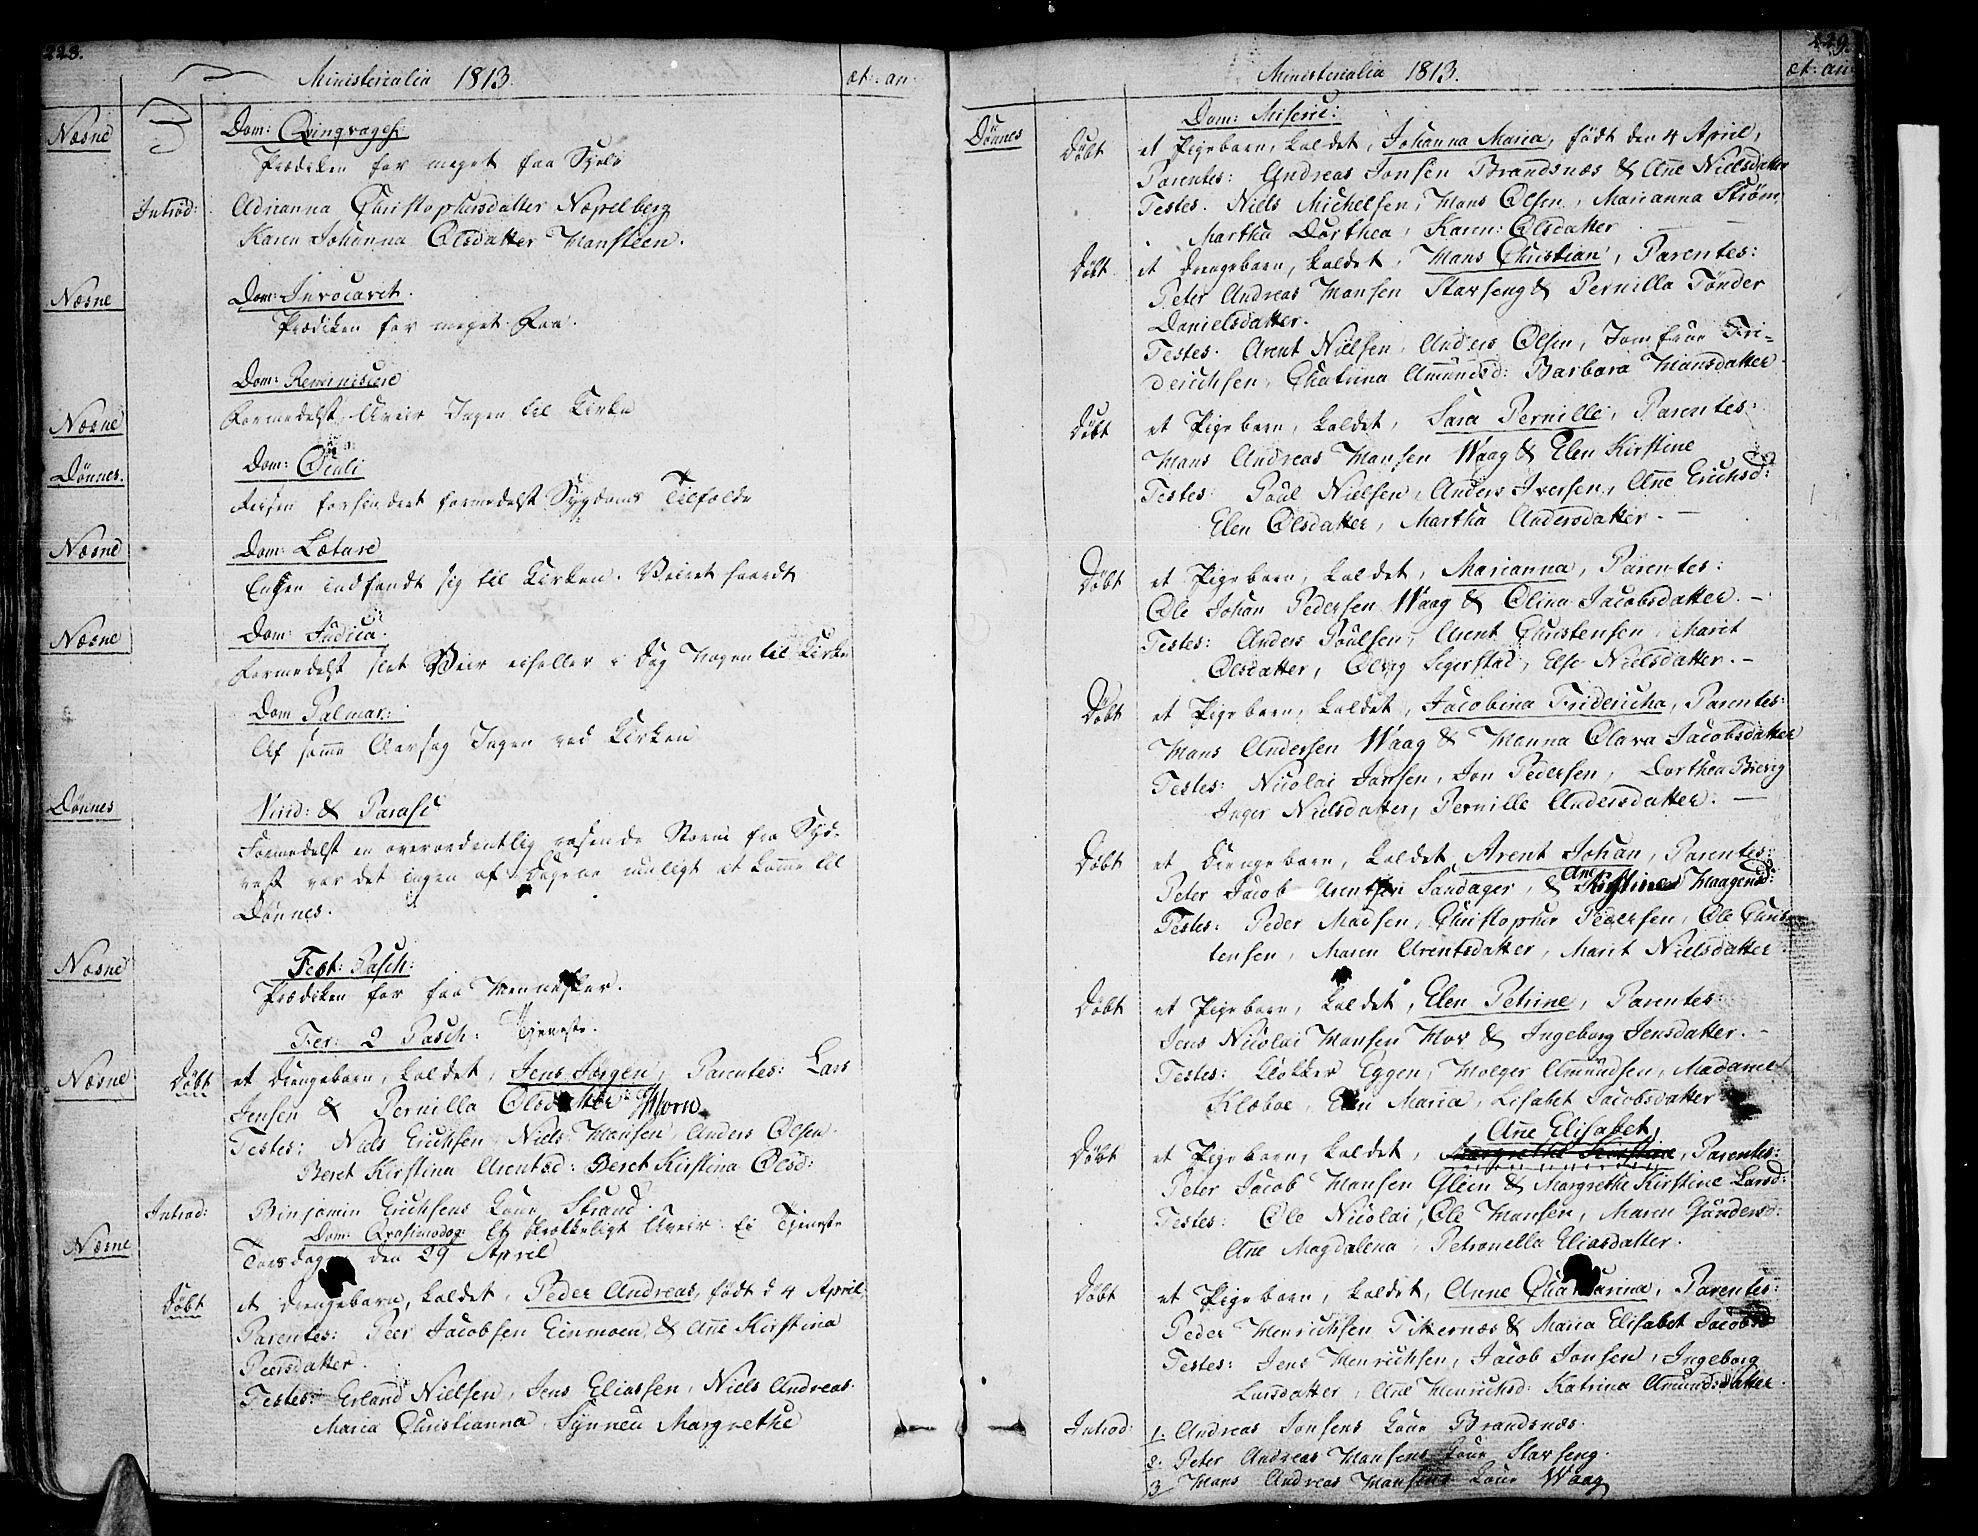 228.
Ministerialia 1813.
æt: an:
Næsne
Dom: Qvinqvages:
Prædiken for meget faa Sjele
Introd: Adrianna Christophersdatter Næpelberg
Karen Johanna Olsdatter Hansteen.
Næsne
Dom: Invocavit.
Prædiken for meget faa.
Dom: Reminiscere
Næsne
Formedelst Uveir Ingen til Kirke
Dom: Oculi
Dønnes.
Reisen forhindret formedelst Sygdoms Tilfælde
Næsne
Dom: Lætare
Engen indfandt sig til Kirken. Veiret haardt
Næsne
Dom: Judica:
Formedelst slet Veir eiheller i Dag Nogen til Kirke
Dom Palmar:
Af samme Aarsag Ingen ved Kirken
Dønnes
Virid: & Parasc
Formedelst en overordentlig rasende Storm fra Syd-
vest var det ingen af Dagene muligt at komme til
Dønnes.
Næsne
Fest: Pasch:
Prædiken for faa Mennesker.
Fer: 2 Pasch: Tjeneste.
Næsne
Døbt et Drengebarn, kaldet, Jens Jørgen, Parentes: Lars
Jensen & Pernilla Olsdatter Horn
Testes: Niels Erichsen, Niels Hansen, Anders Olsen
Beret Kirstina Arentsd: Beret Kirstina Olsd:
Introd: Binjamin Erichsens Kone Strand.
Næsne
Dom: Qvasimodog: Et skrækkeligt Uveir. Ei Tjeneste
Torsdag den 29 April
Døbt et Drengebarn, kaldet, Peder Andreas, født d 4 April,
Parentes: Peer Jacobsen Einmoen & Ane Kirstina
Peersdatter.
Testes: Erland Nielsen, Jens Eliassen, Niels Andreas
Maria Christianna, Synneu Margrethe
229.
Ministerialia 1813.
æt: an:
Dønnes
Dom: Miseric:
Døbt et Pigebarn, kaldet, Johanna Maria, født den 4 April,
Parentes: Andreas Jonsen Brandsnæs & Ane Nielsdatter
Testes. Niels Michelsen, Hans Olsen, Marianna Strøm,
Martha Dorthea, Karen Olsdatter
Døbt. et Drengebarn, kaldet, Hans Christian, Parentes:
Peter Andreas Hansen Stavseng & Pernilla Tønder
Danielsdatter.
Testes. Arent Nielsen, Anders Olsen, Jomfrue Fri-
derichsen, Chatrina Amundsd: Barbara Hansdatter
Døbt et Pigebarn, kaldet, Sara Pernille, Parentes:
Hans Andreas Hansen Waag & Elen Kirstine
Testes: Poul Nielsen, Anders Iversen, Ane Erichsd:
Elen Olsdatter, Martha Andersdatter. —
Døbt et Pigebarn, kaldet, Marianna, Parentes:
Ole Johan Pedersen Waag & Olina Jacobsdatter. —
Testes: Anders Poulsen, Arent Christensen, Marit
Olsdatter, Olvig Segerstad, Else Nielsdatter. —
Døbt et Pigebarn, kaldet, Jacobina Friderica, Parentes:
Hans Andersen Waag & Hanna Olava Jacobsdatter
Testes: Nicolai Jonsen, Jon Pedersen, Dorthea
Inger Nielsdatter, Pernille Andersdatter. —
Døbt et Drengebarn, kaldet, Arent Johan, Parentes:
Peter Jacob Arentsen Sandager, & Ane Kirstine Haagensd:
Testes: Peder Madsen, Christopher Pedersen, Ole Chris-
tensen, Maren Arentsdatter, Marit Nielsdatter
Døbt et Pigebarn, kaldet, Elen Petrine, Parentes:
Jens Nicolai Hansen Mov & Ingeborg Jensdatter. —
Testes: Klokker Eggen, Holger Amundsen, Madame
Klæboe, Elen Maria, Lisabet Jacobsdatter
Døbt et Pigebarn, kaldet, Ane Elisabet, Parentes:
Peter Jacob Hansen Glein & Margrethe Kirstine Larsd:
Testes: Ole Nicolai, Ole Hansen, Maren Gundersd:
Ane Magdalena, Petronella Eliasdatter.
Døbt et Pigebarn, kaldet, Anne Chatharina, Parentes:
Peder Henrichsen Tikternæs & Maria Elisabet Jacobsd
Testes: Jens Henrichsen, Jacob Jonsen, Ingeborg
Larsdatter, Ane Henrichsd: Katrina Amundsdatter.
Introd: 1. Andreas Jonsens Kone Brandsnæs.
2. Peter Andreas Hansens Kone Stavseng.
3 Hans Andreas Hansens Kone Waag